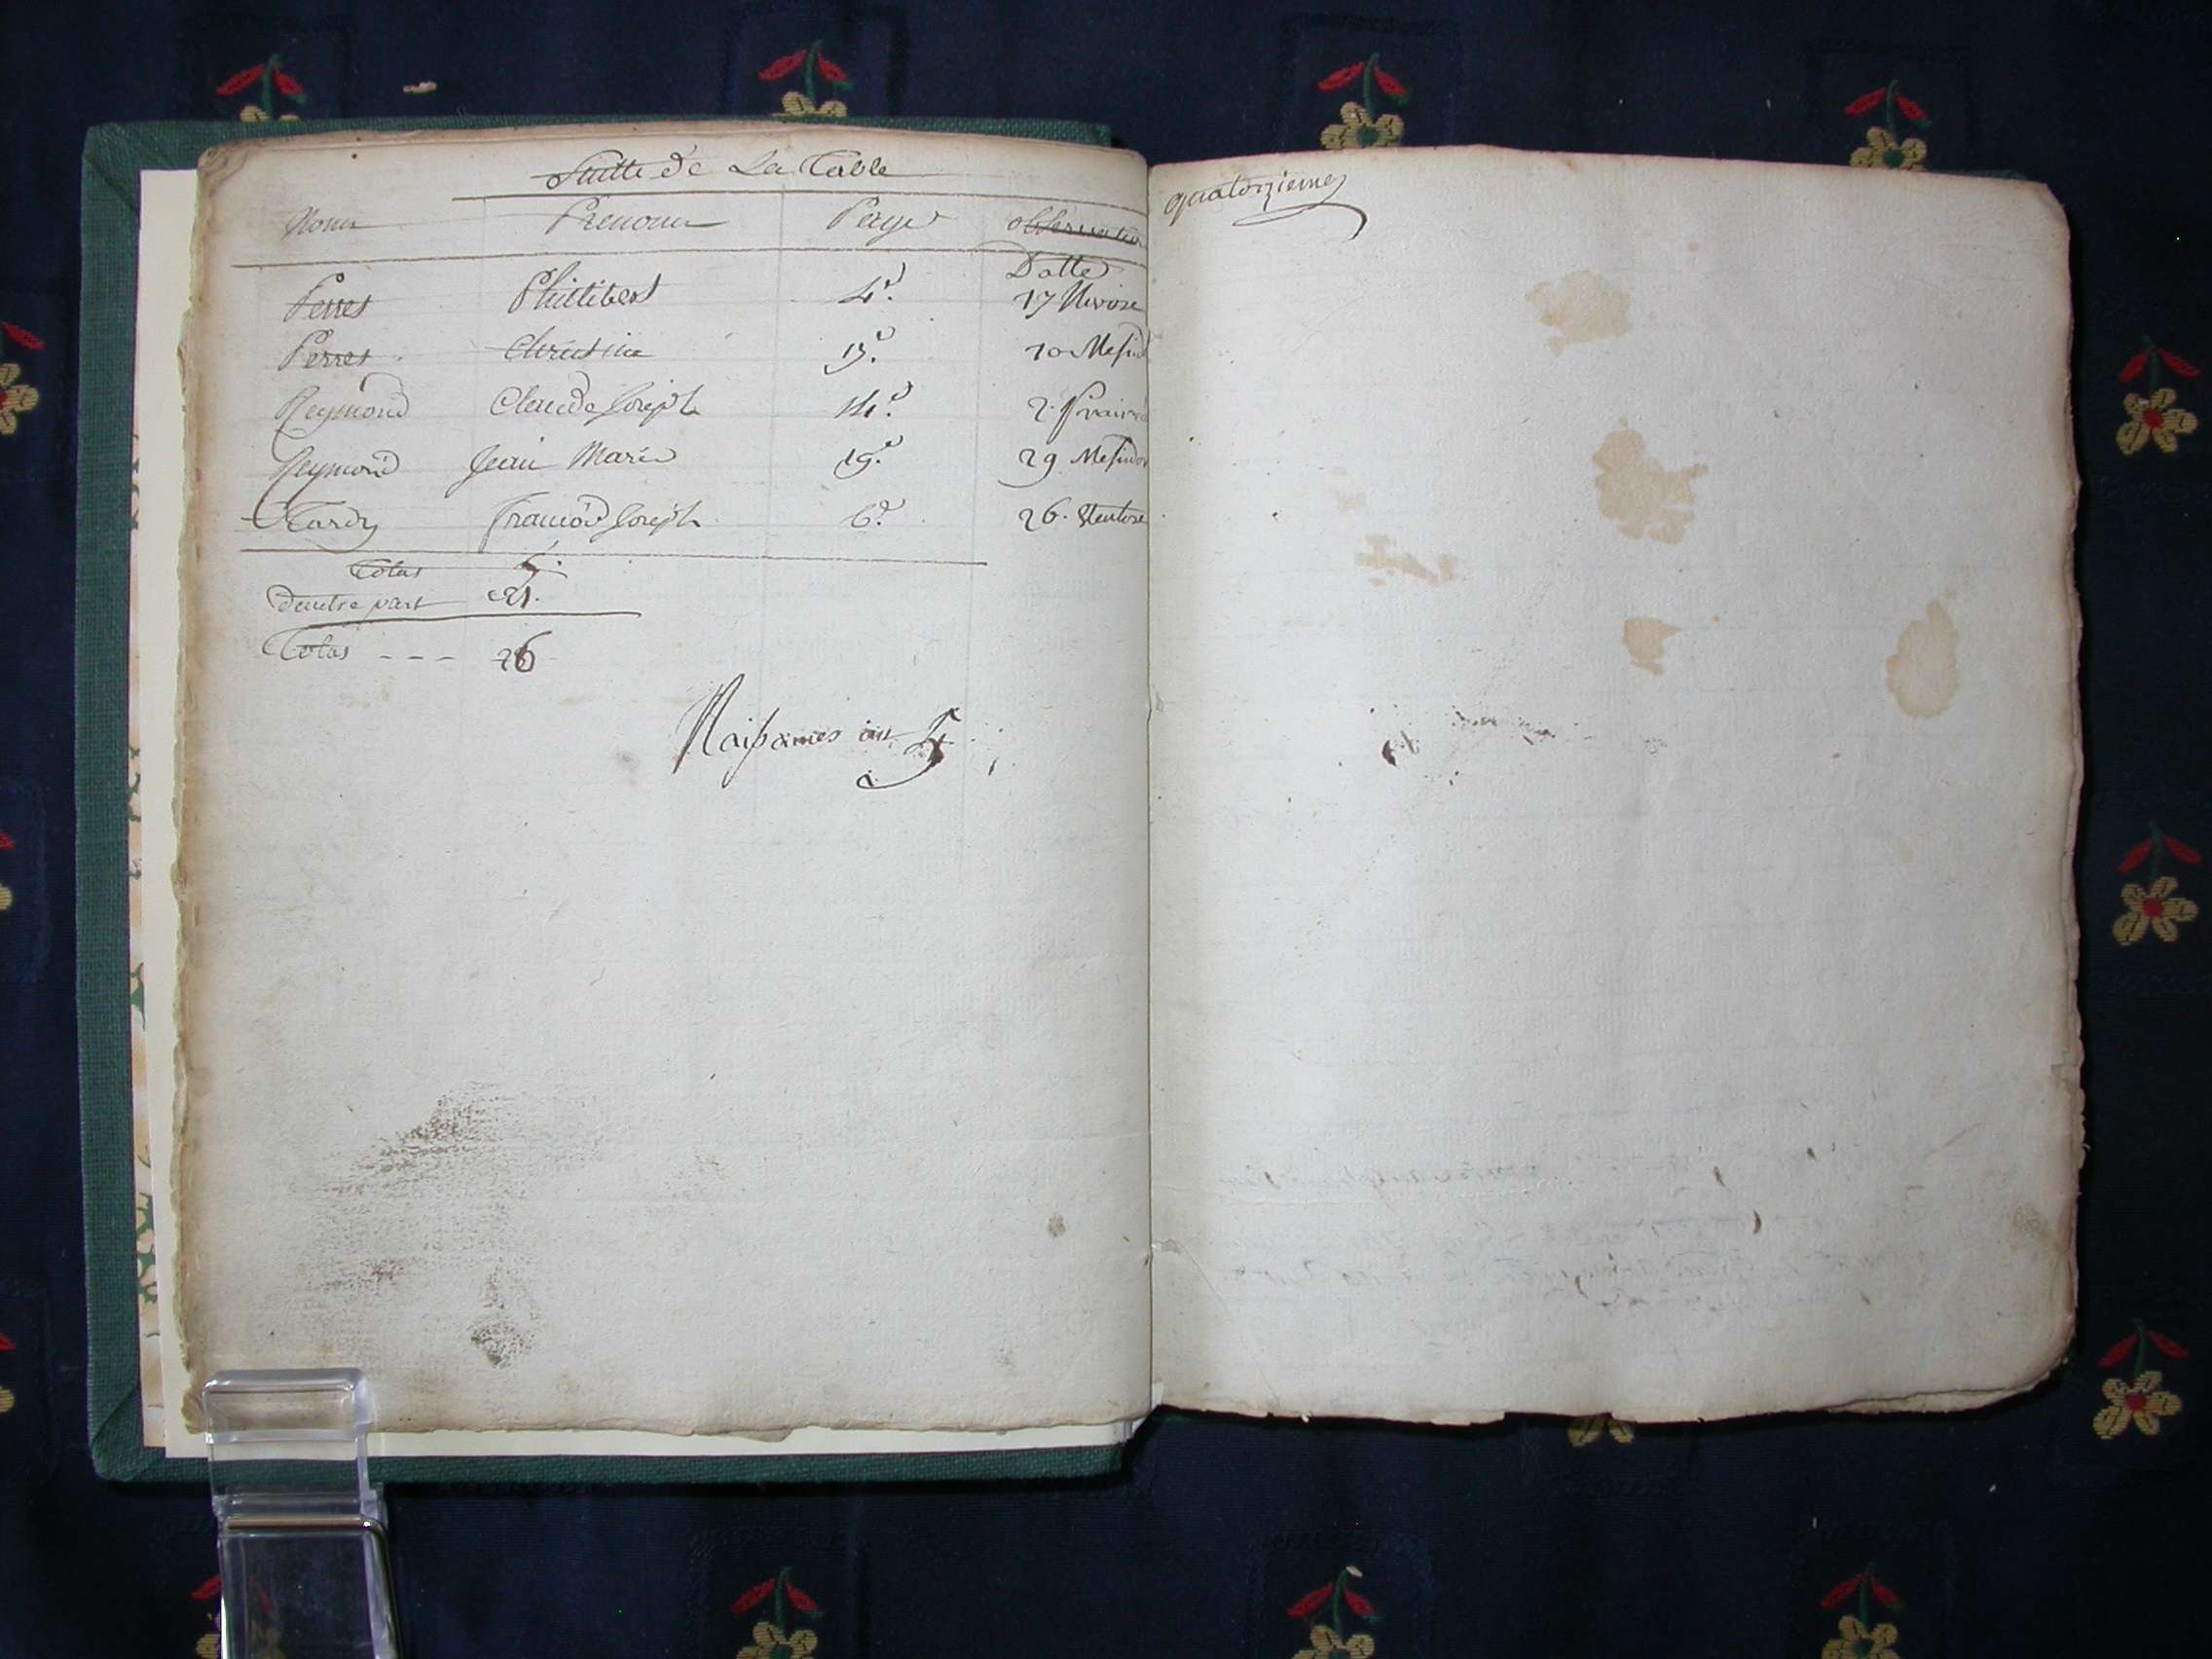 Suitte de La Table
Noms Prenoms Page observation
Datte
Perret Philibert 4e. 17 Nivose
Perret Christine 19e. 10 Messid
Reymond Claude Joseph 14e. 2. Prairial
Reymond Jean Marie 19e. 29 Messidor
Tardy François Joseph 6e. 26. Ventose
Total 5.
D'autre part 21.
Total --- 26
Naissances an 5
quatorzieme